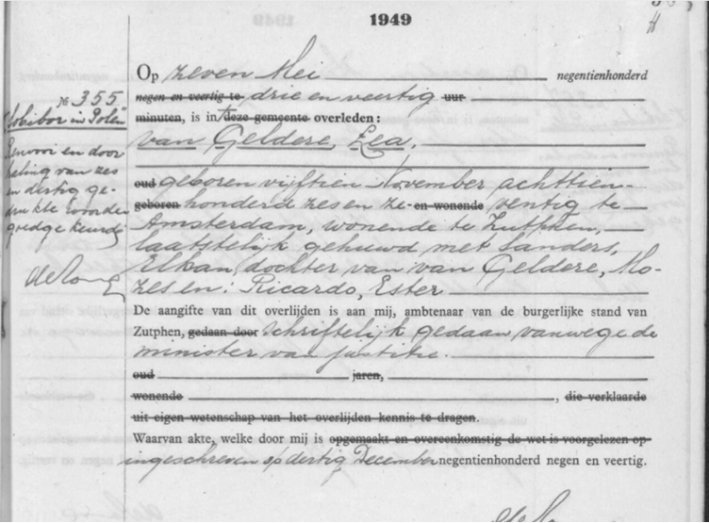 1949
Op zeven Mei negentienhonderd
negen en veertig te drie en veertig uur
minuten, is in deze gemeente overleden:
van Geldere, Lea.
oud geboren vijftien November achttien-
geboren honderd zes en ze- en wonende ventig te
Amsterdam, wonende te Zutphen,
laatstelijk gehuwd met Sanders,
Elkan, dochter van van Geldere, Mo-
zes en: Ricardo, Ester
De aangifte van dit overlijden is aan mij, ambtenaar van de burgerlijke stand van
Zutphen, gedaan door schriftelijk gedaan vanwege de
minister van justitie.
oud jaren,
wonende , die verklaarde
uit eigen wetenschap van het overlijden kennis te dragen.
Waarvan akte, welke door mij is opgemaakt en overeenkomstig de wet is voorgelezen op
ingeschreven op dertig December negentienhonderd negen en veertig.
№ 355
Sobibor in Polen
Renvooi en door
haling van zes
en dertig ge-
drukte woorden
goedgekeurd